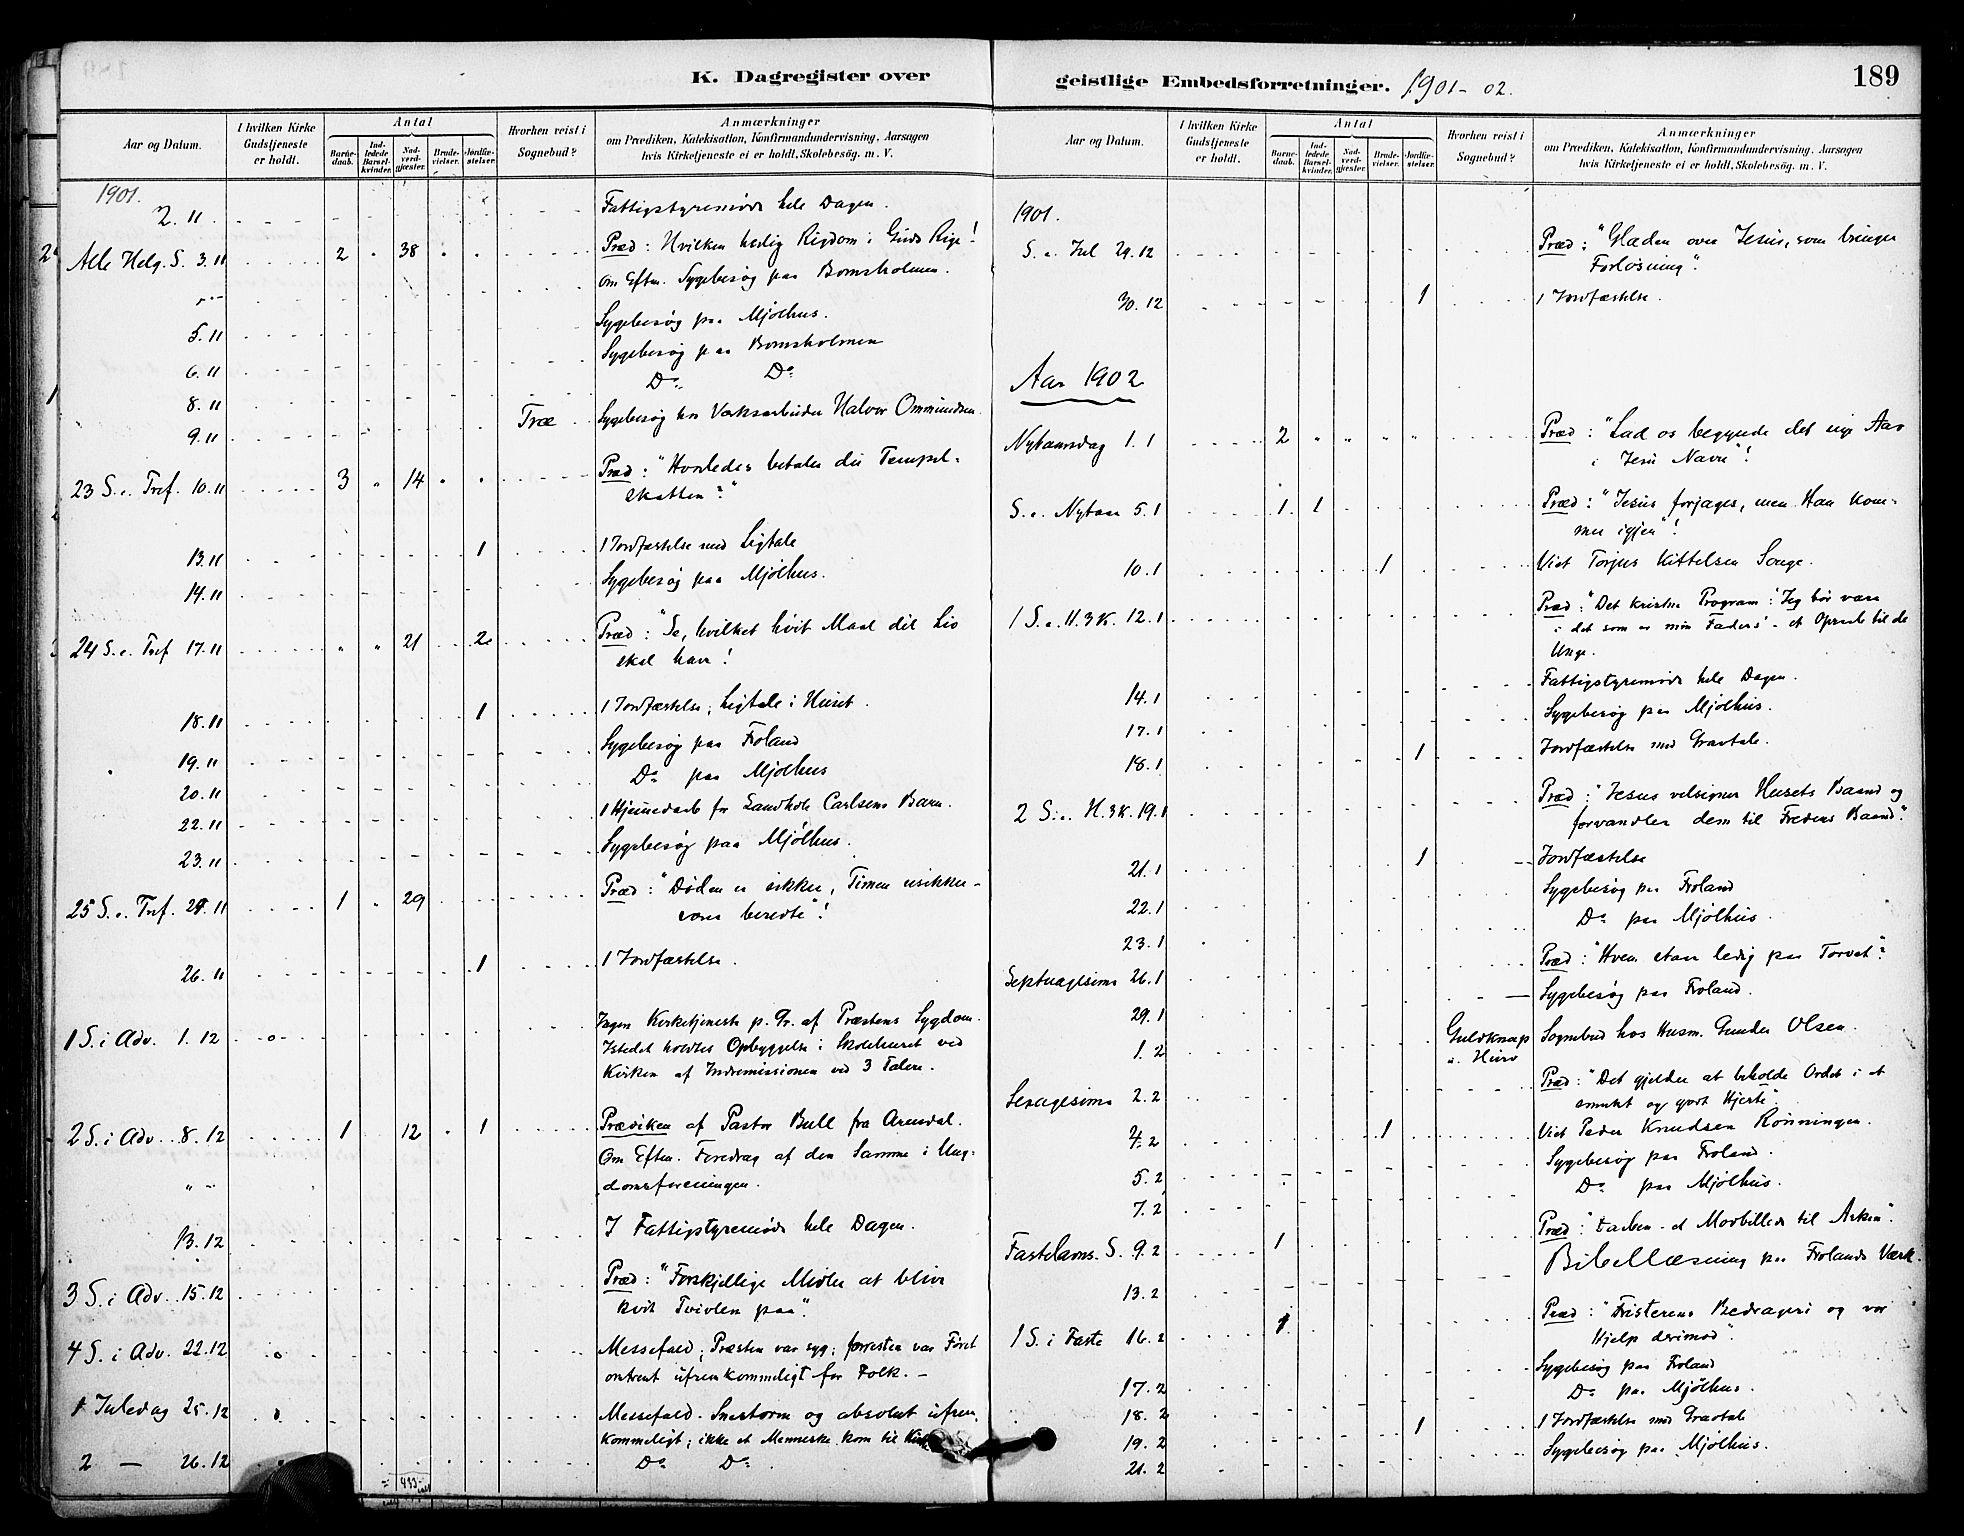 K. Dagregister over
Aar og Datum.
I hvilken Kirke Gudstjeneste er holdt.
Antal
Barnedaab.
Indledede Barselkvinder.
Nadverdgjæster.
Brudevielser.
Jordfæstelser.
Hvorhen reist i Sognebud?
Anmærkninger
om Prædiken, Katekisation, Konfirmandundervisning, Aarsagen
hvis Kirketjeneste ei er holdt, Skolebesøg. m. V.
1901.
2.11 Fattigstyremøde hele Dagen.
Alle Helg. S. 3.11 2 " 38 " " Præd: Hvilken herlig Rigdom i Guds Rige!
om Eftm. Sygebesøg paa Bomsholmen.
5.11 Sygebesøg paa Mjølhus.
6.11 Sygebesøg paa Bomsholmen
8.11 Do Do
9.11 Træ Sygebesøg hos Værksarbeider Halvor Ommundsen.
23 S. e. Tref. 10.11 3 " 14 " " Præd: "Hvorledes betaler du Tempel-
skatten?"
13.11 1 1 Jordfæstelse med Ligtale
14.11 Sygebesøg paa Mjølhus.
24 S. e. Tref 17.11 " " 21 2 Præd: "Se, hvilket høit Maal dit Liv
skal have!
18.11 1 1 Jordfæstelse; Ligtale i Huset.
19.11 Sygebesøg paa Froland
20.11 Do paa Mjølhus
22.11 1 Hjemmedaab for Landh. Carlsens Barn.
23.11 Sygebesøg paa Mjølhus.
25 S. e. Tref. 24.11 1 " 29 Præd: "Døden er sikker, Timen usikker-
være beredte"!
26.11 1 1 Jordfæstelse.
1 S. i Adv. 1.12 o Ingen Kirketjeneste p. Gr. af Præstens Sygdom.
Istedet holdtes Opbyggelse i Skolehuset ved
Kirken af Indremissionen ved 3 Talere.
2 S. i Adv. 8.12 1 12 " 1 Prædiken af Pastor Bull fra Arendal.
" — Om Eftm. Foredrag af den Samme i Ung-
domsforeningen.
13.12 I Fattigstyremøde hele Dagen.
3 S. i Adv. 15.12 Præd: "Forskjellige Midler at blive
kvit Tvivlen paa".
4 S. i Adv. 22.12 o Messefald; Præsten var syg; forresten var Føret
omtrent ufremkommeligt for Folk. —
1 Juledag 25.12 o Messefald. Snestorm og absolut ufrem-
kommeligt; ikke et Menneske kom til Kirke
2 — 26.12 Do Do.
433
geistlige Embedsforretninger. 1901-02.
189
Aar og Datum.
I hvilken Kirke Gudstjeneste er holdt.
Antal
Barnedaab.
Indledede Barselkvinder.
Nadverdgjæster.
Brudevielser.
Jordfæstelser.
Hvorhen reist i Sognebud?
Anmærkninger
om Prædiken, Katekisation, Konfirmandundervisning, Aarsagen
hvis Kirketjeneste ei er holdt, Skolebesøg. m. V.
1901.
S. e. Jul 29.12 Præd: "Glæden over Jesus, som bringer
Forløsning".
30.12 1 1 Jordfæstelse.
Aar 1902
Nytaarsdag 1.1 2 " " " " Præd: "Lad os begynde det nye Aar
i Jesu Navn"!
S. e. Nytaar 5.1 1 1 Præd: "Jesus forjages, men Han kom-
mer igjen"!
10.1 1 Viet Torjus Kittelsen Songe.
1 S. e. H.3K. 12.1 Præd: "Det kristne Program: 'Jeg bør være
i det som er min Faders' - et Opraab til de
Unge.
14.1 Fattigstyremøde hele Dagen.
17.1 Sygebesøg paa Mjølhus.
18.1 1 Jordfæstelse med Gravtale.
2 S. e. H.3K. 19.1 Præd: "Jesus velsigner Husets Baand og
forvandler dem til Fredens Baand".
21.1 1 Jordfæstelse
22.1 Sygebesøg paa Froland
23.1 Do paa Mjølhus.
Septuagesima 26.1 Præd: "Hvem staar ledig paa Torvet"?
29.1 Sygebesøg paa Froland.
1.2 Guldknap Sognebud hos Husm. Gunder Olsen.
Sexagesima 2.2 Præd: "Det gjelder at beholde Ordet i et
smukt og godt Hjerte".
4.2 1 Viet Peder Knudsen Rønningen.
5.2 Sygebesøg paa Froland.
7.2 Do paa Mjølhus.
Fastelavns. S. 9.2 1 Præd: "Daaben - et Modbillede til Arken".
13.2 Bibellæsning paa Frolands Værk.
1 S. i Faste 16.2 1 Præd: "Fristerens Bedrageri og vor
Hjelp derimod".
17.2 Sygebesøg paa Froland
18.2 Do paa Mjølhus.
19.2 1 1 Jordfæstelse med Gravtale
21.2 Sygebesøg paa Mjølhus.